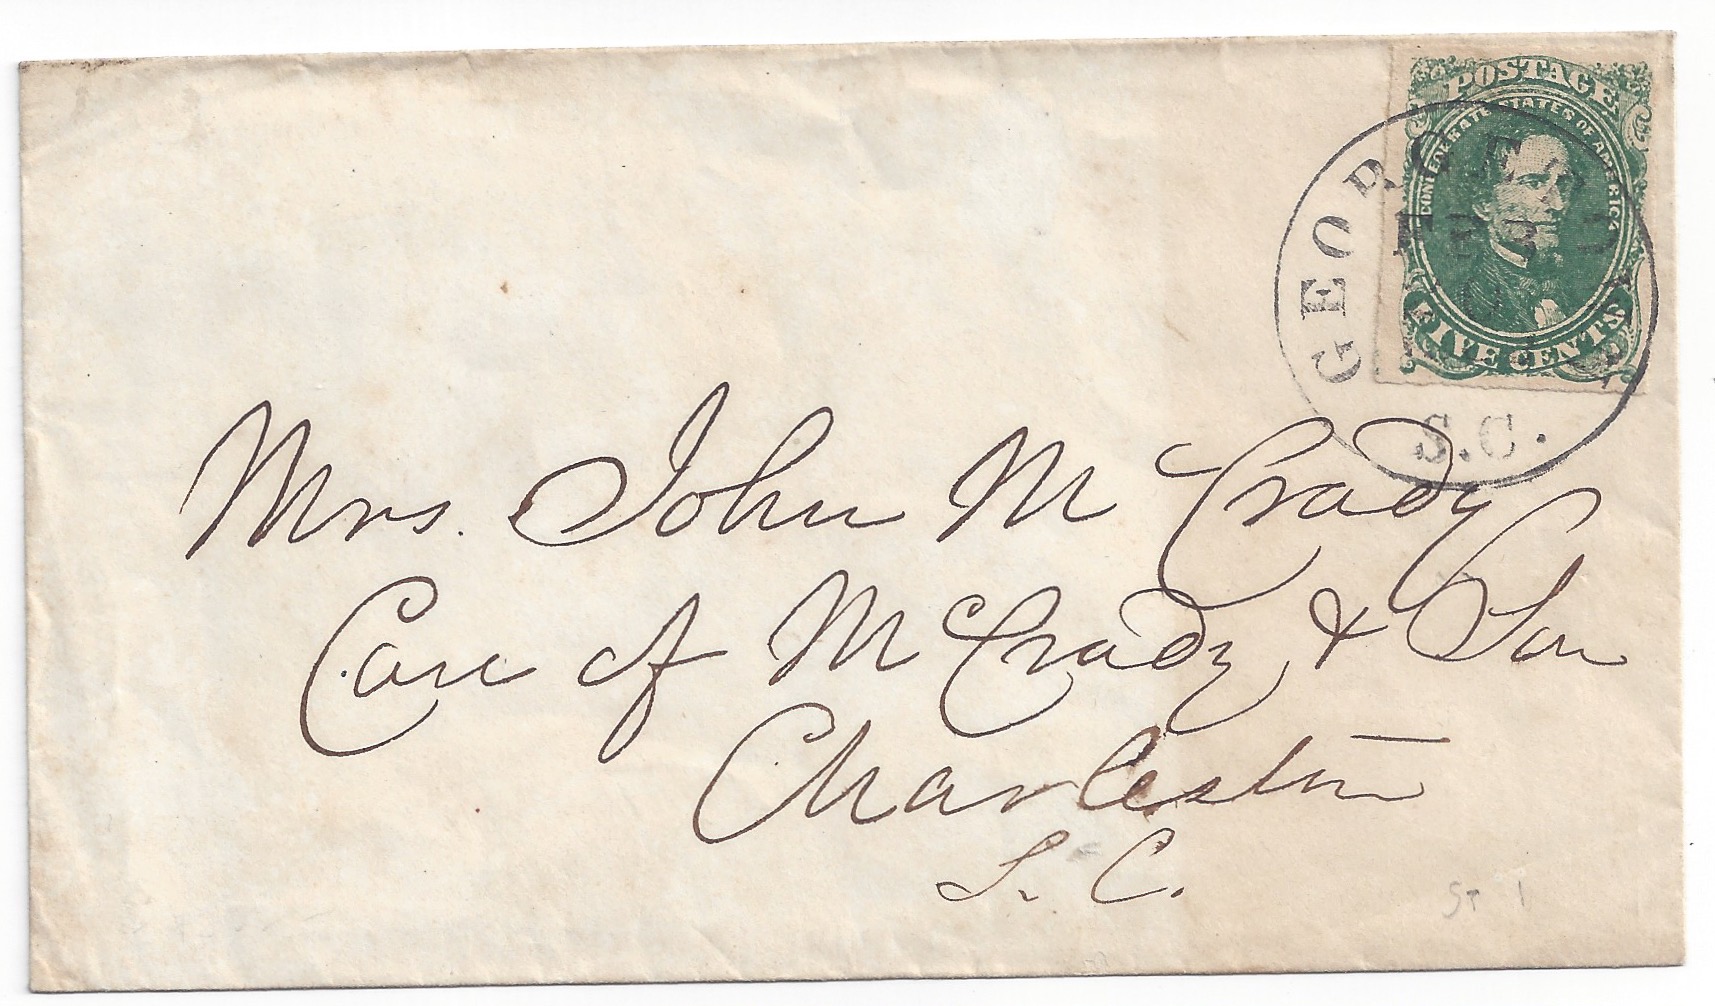 POSTAGE
CONFEDERATE STATES OF AMERICA
FIVE CENTS
GEORGETOWN
FEB
S.C.
Mrs. John M Crady
Care of M Crady & Son
Charleston
S. C.
ST 1